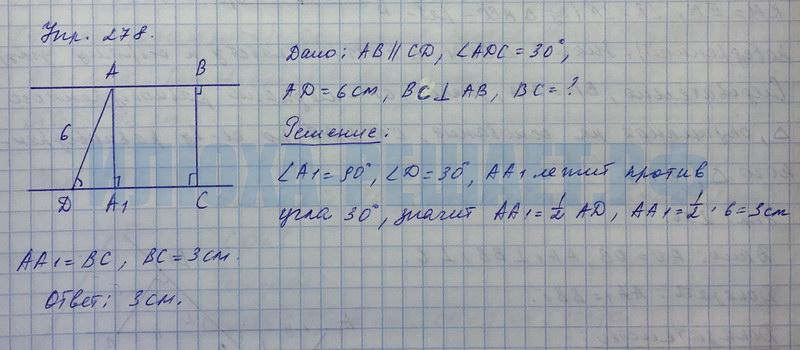 Упр. 278.
Дано: AB || CD, ∠ADC = 30°,
AD = 6 см, BC ⊥ AB, BC = ?
Решение:
∠A1 = 90°, ∠D = 30°, AA1 лежит против
угла 30°, значит AA1 = 1/2 AD, AA1 = 1/2 · 6 = 3 см
A B
6
D A1 C
AA1 = BC, BC = 3 см.
Ответ: 3 см.